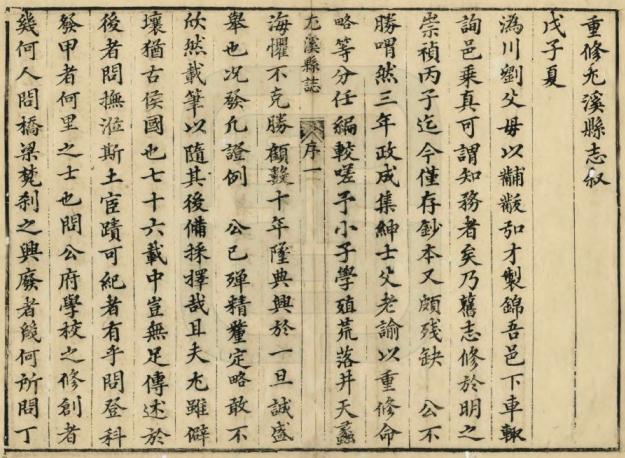 重修尤溪縣志叙
戊子夏
溈川劉父母以黼黻弘才製錦吾邑下車輒
詢邑乘真可謂知務者矣乃舊志修於明之
崇禎丙子迄今僅存鈔本又頗残缺　公不
勝喟然三年政成集紳士父老諭以重修命
略等分任編較嗟予小子學殖荒落井天蠡
尤溪縣誌　序一
海懼不克勝顧數十年墜典興於一旦誠盛
舉也况發凡證例　公已殫精釐定略敢不
欣然載筆以隨其後備採擇哉且夫尤雖僻
壤猶古侯國也七十六載中豈無足傳述於
後者問撫涖斯土宦蹟可紀者有乎問登科
發甲者何里之士也問公府學校之修創者
幾何人問橋梁梵刹之興廢者幾何所問丁